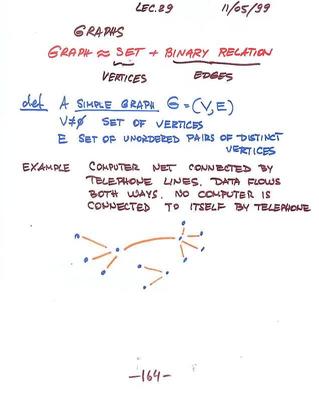 LEC.29 11/05/99
GRAPHS
GRAPH ≈ SET + BINARY RELATION
VERTICES EDGES
def A SIMPLE GRAPH G=(V,E)
V≠∅ SET OF VERTICES
E SET OF UNORDERED PAIRS OF DISTINCT
VERTICES
EXAMPLE COMPUTER NET CONNECTED BY
TELEPHONE LINES. DATA FLOWS
BOTH WAYS. NO COMPUTER IS
CONNECTED TO ITSELF BY TELEPHONE
-164-